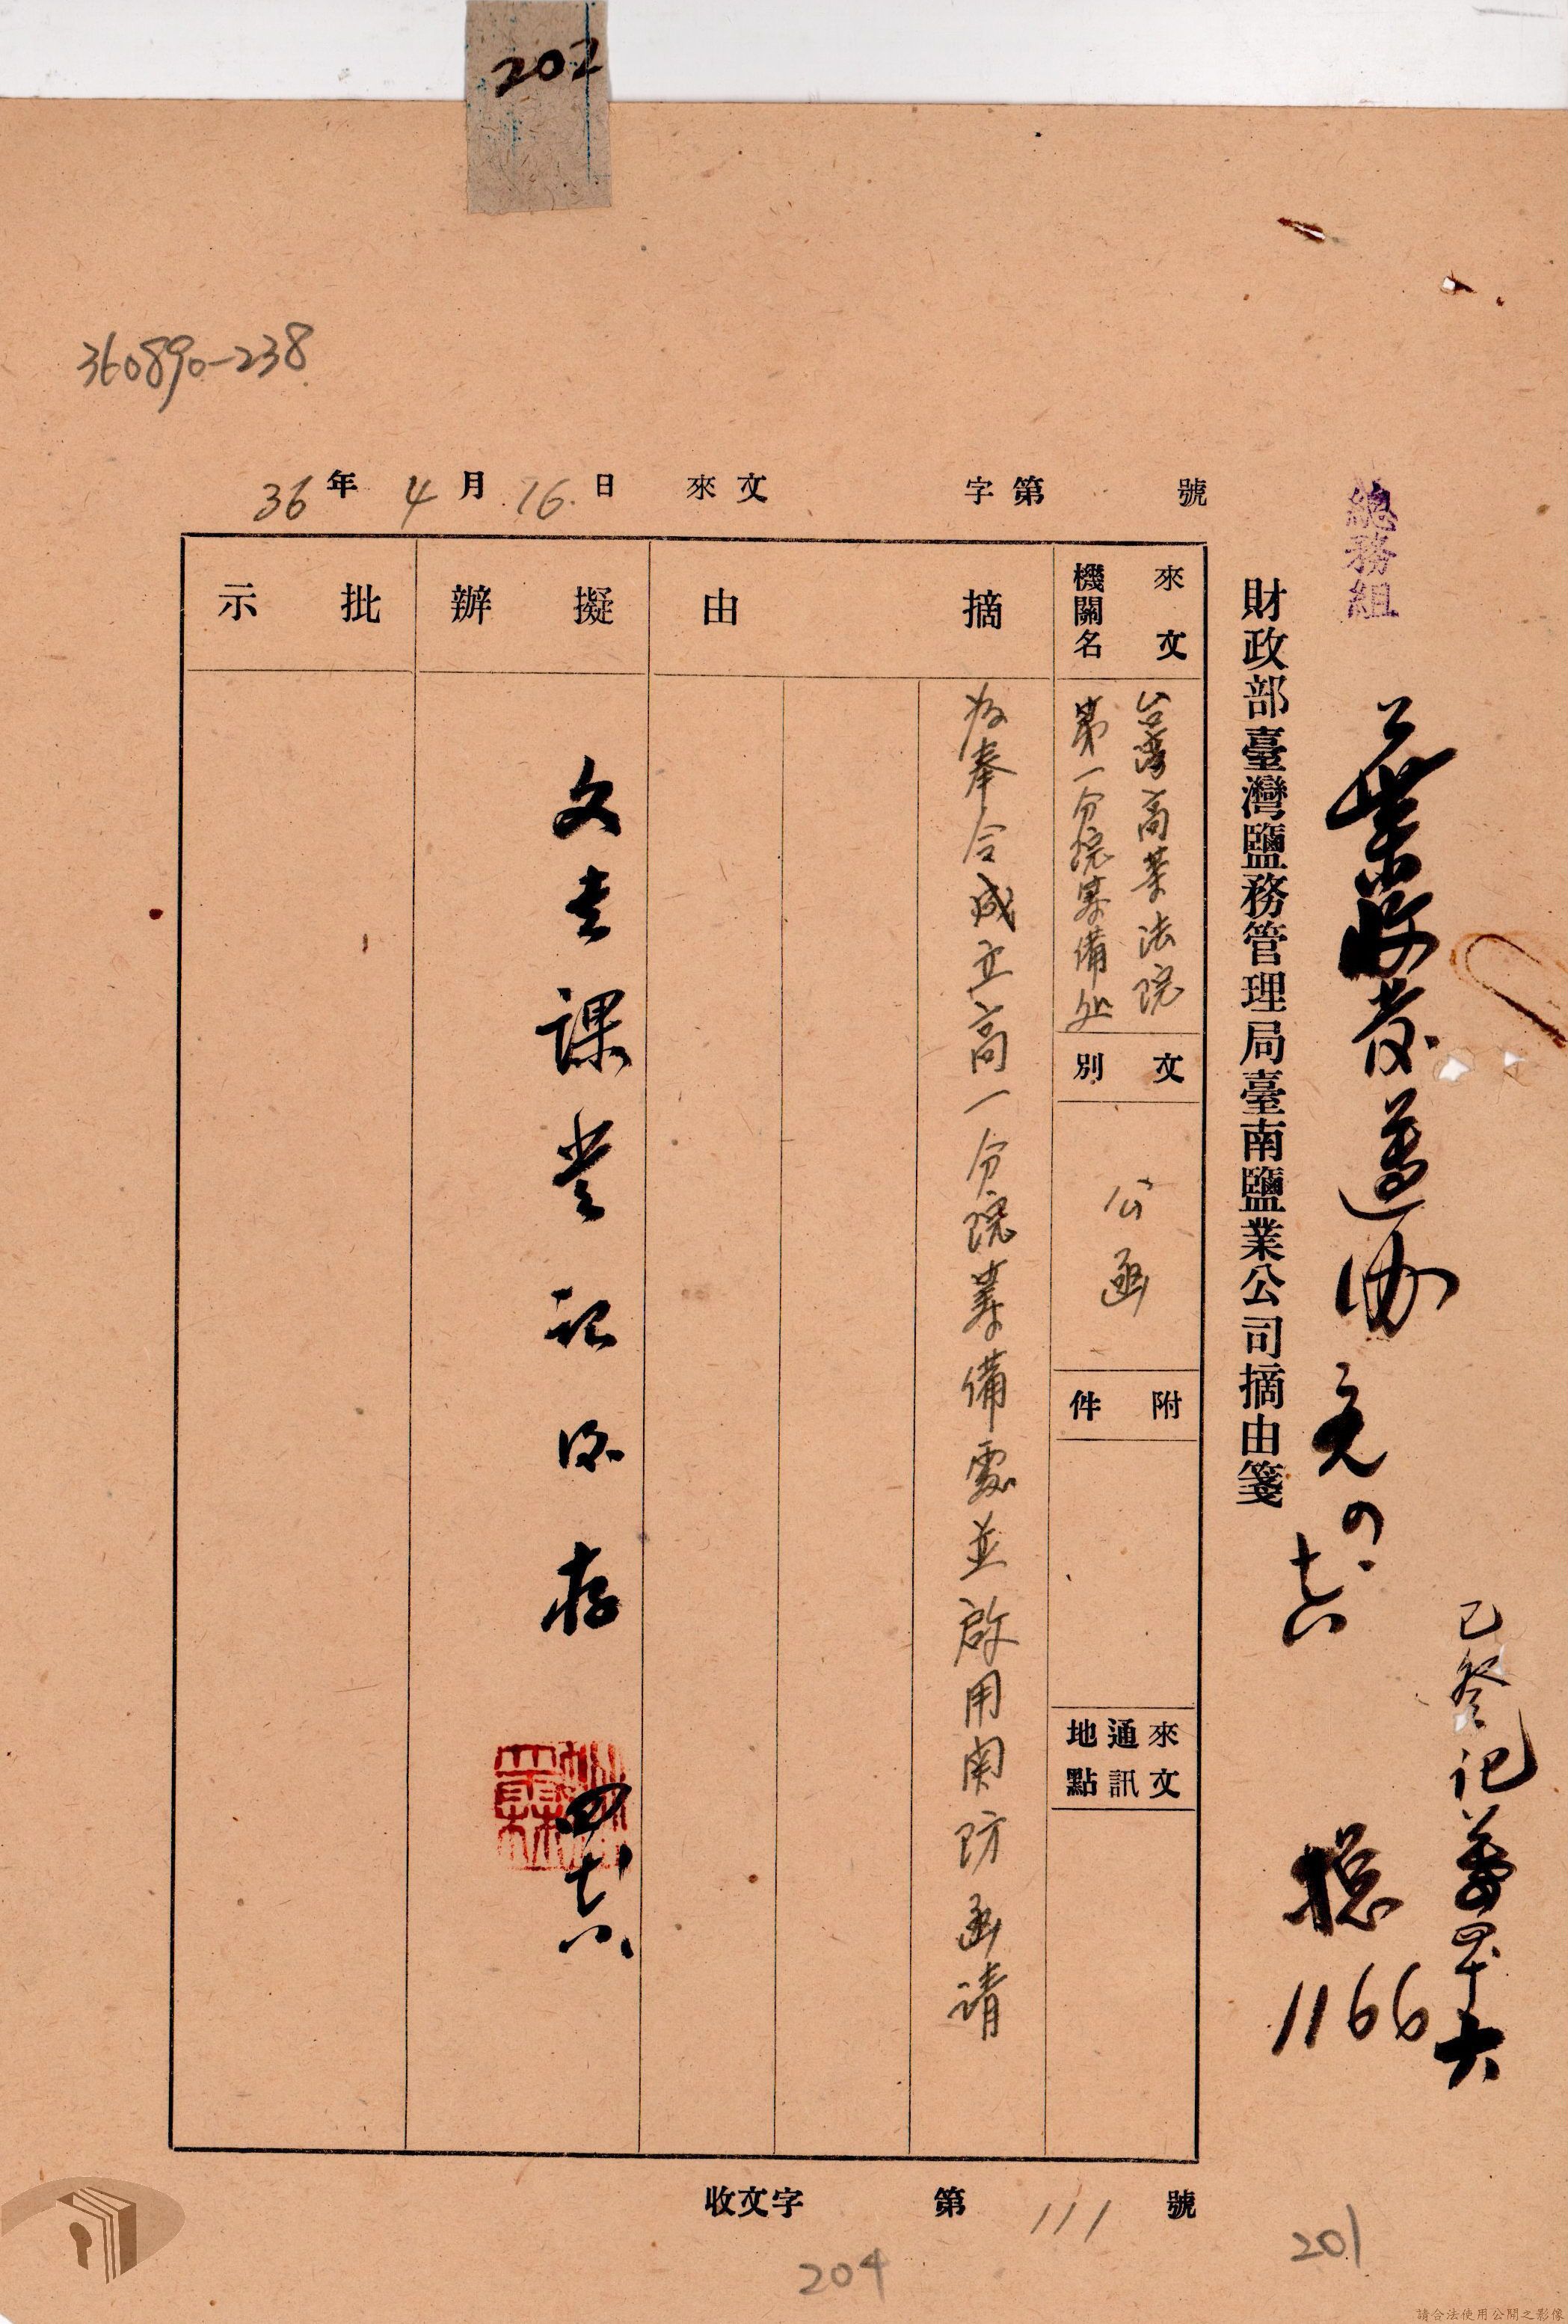 202
360890-238
36年4月16日 來文 字第 號
總務組
財政部臺灣鹽務管理局臺南鹽業公司摘由箋
已登記
總
1166
來文機關名
台灣高等法院
第一分院籌備處
文別
公函
附件
來文通訊地點
摘由
為奉令成立高一分院籌備處並啟用関防函請
擬辦
文書課登記後存
批示
收文字 第111號
201
204
請合法使用公開之影像